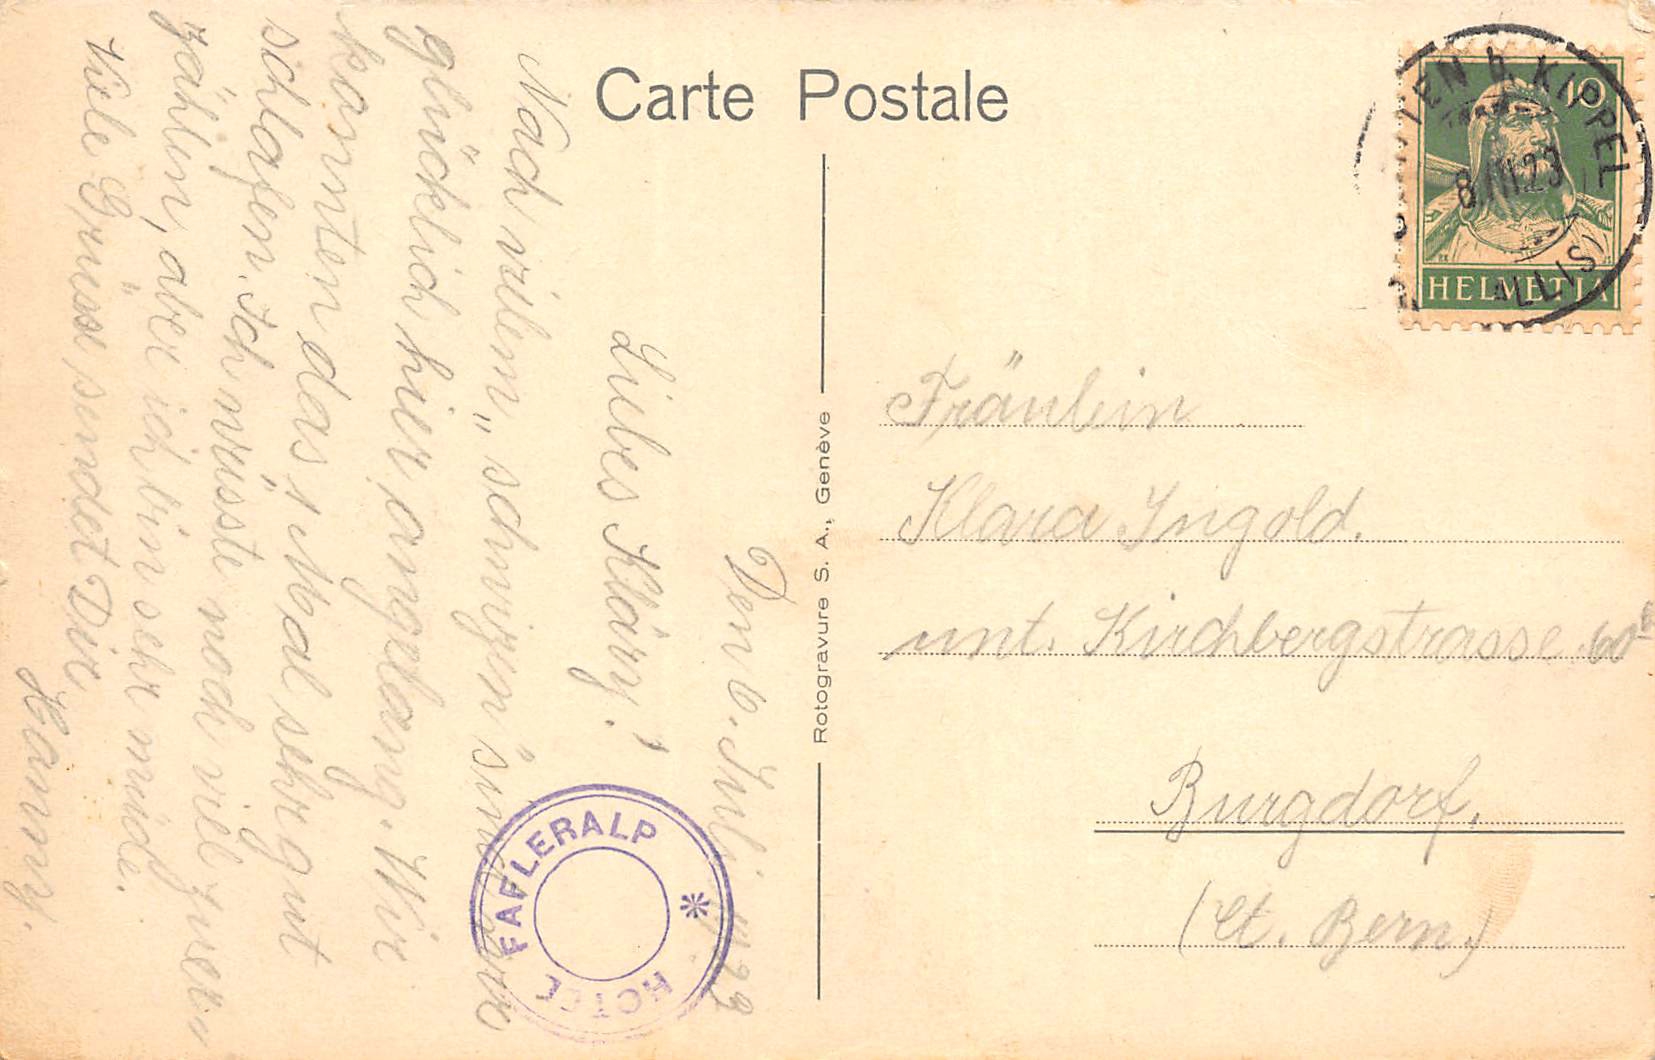 Carte Postale
Den 6. Juli 1923
Liebes Kläry!
Nach vielem „schwizen" sind wir
glücklich hier angelang. Wir
konnten das 1 Mal sehr gut
schlafen. Ich wüsste noch viel zu er
zählen, aber ich bin sehr müde.
Viele Grüsse sendet Dir
Hanny.
HOTEL FAFLERALP *
Rotogravure S. A., Genève
10
HELVETIA
KIPPEL
8.VII.23
Fräulein
Klara Ingold.
unt. Kirchbergstrasse 60
Burgdorf,
(Ct. Bern.)